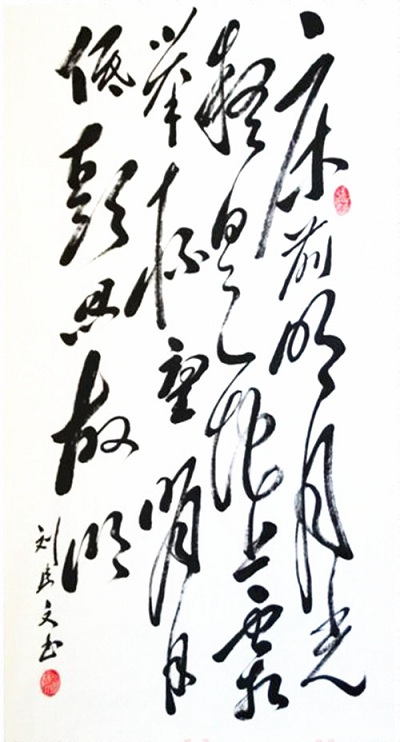 床前明月光
疑是地上霜
举杯望明月
低頭思故鄉
刘 文书